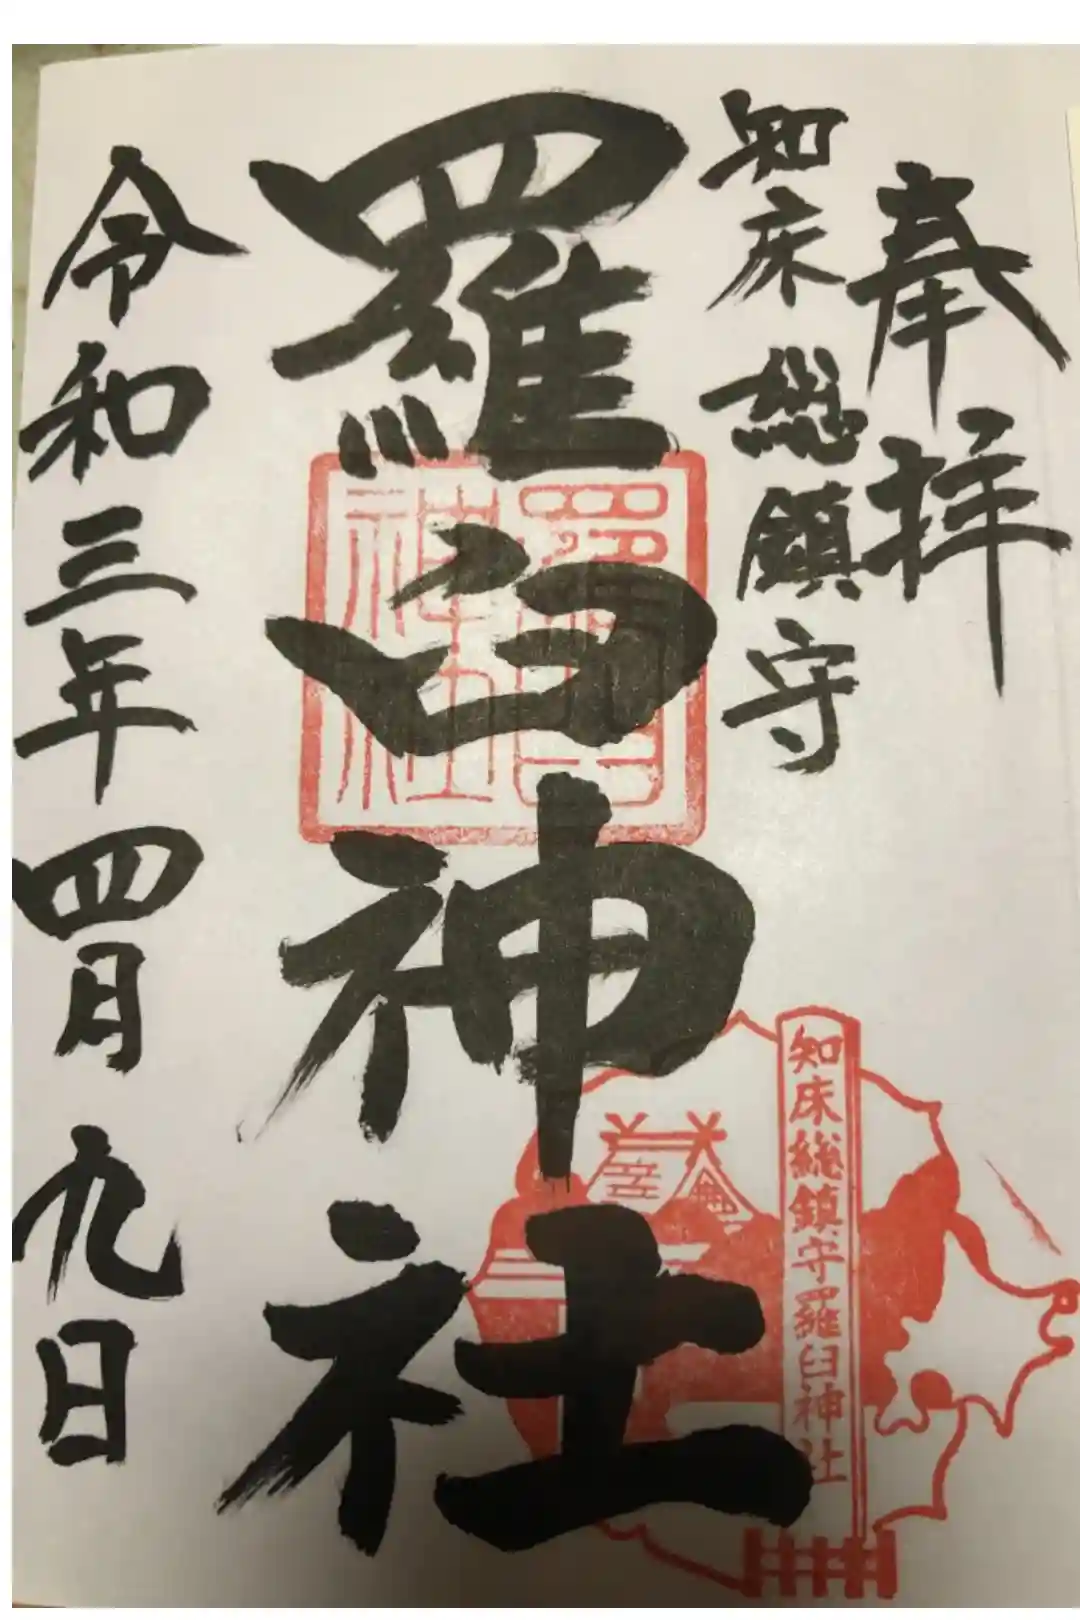 奉拝
知床総鎮守
羅臼神社
令和三年四月九日
知床総鎮守羅臼神社